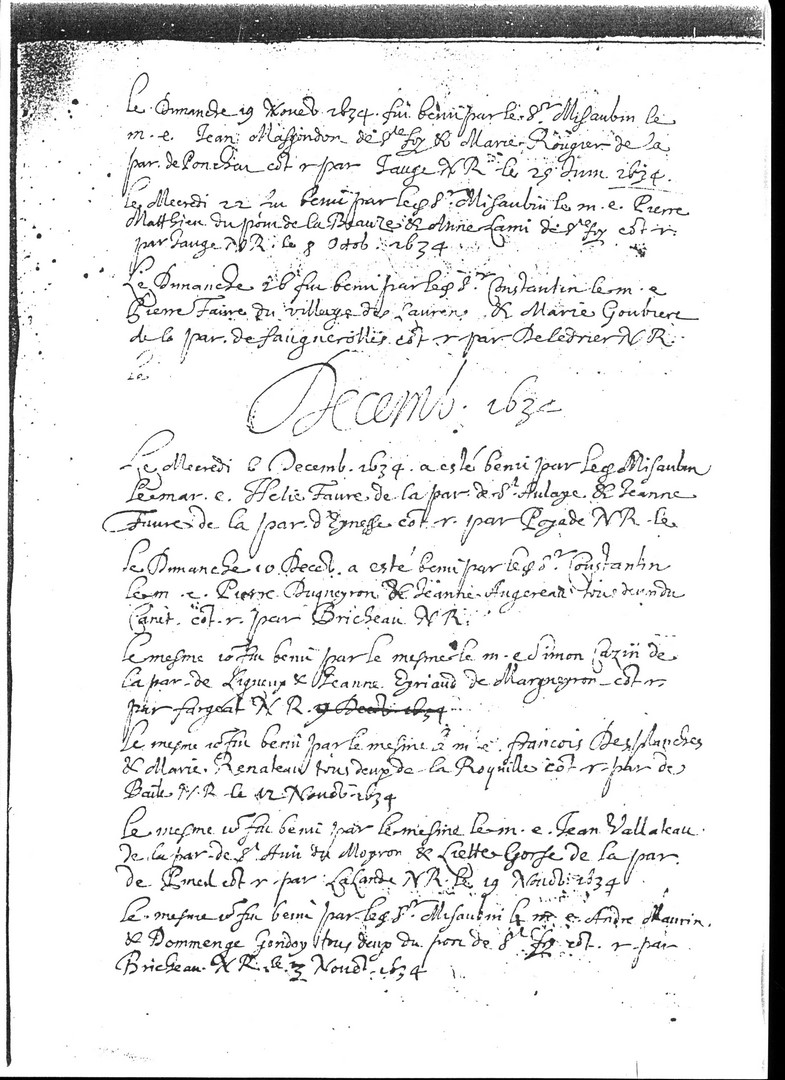 Le Dimanche 19 Noveb. 1634. fut beni par le Sr. Misaubin le
m. e. Jean Massondon de Ste foy & Marie Rougier de la
par. de Ponchat cot. r par Jauge N R le 29 Juin 1634.
Le Mecredi 22 fu beni par le Sr. Misaubin le m. e. Pierre
Matthieu du port de la Beauze & Anne Lami de Ste foy cot. r.
par Jauge N R. le 8 Octob. 1634
Le Dimanche 26 fut beni par le Sr. Constantin le m. e
Pierre Faure du village des Laurens & Marie Goubiere
de la par. de fauguerolles cot. r par Deledrier N R.
Le
Decemb. 1634
Le Mecredi 6 Decemb. 1634. a esté beni par le Misaubin
le mar. e. Helie Faure de la par de St. Aulaye & Jeanne
Faure de la par. d'Eynesse cot. r. par Pojade N R le
le Dimanche 10 Deceb. a esté beni par le Sr. Constantin
le m. e. Pierre Dugneyron & Jeanne Augereau tous deux du
Canet. cot. r. par Bricheau N R.
le mesme jour fu beni par le mesme le m. e Simon Cazin de
la par. de Ligueux & Jeanne Eyriaud de Margueyron cot. r
par fargeat N R. 9 Deceb 1634
Le mesme jour fu beni par le mesme le m. e. francois Desplanches
& Marie Renateau tous deux de la Roquille cot. r. par de
Baile N R le 12 Noveb. 1634
Le mesme jour fu beni par le mesme le m. e. Jean Vallateau
de la par. de St. Avit du Moyron & Liette Gorse de la par.
de Pinueil cot. r. par LaLande N R. le 19 Noveb. 1634
le mesme jour fu beni par le Sr. Misaubin le m. e. Andre Maurin.
& Dommenge Gondoy tous deux du port de Ste foy cot. r par
Bricheau N R. le 3 Noveb. 1634